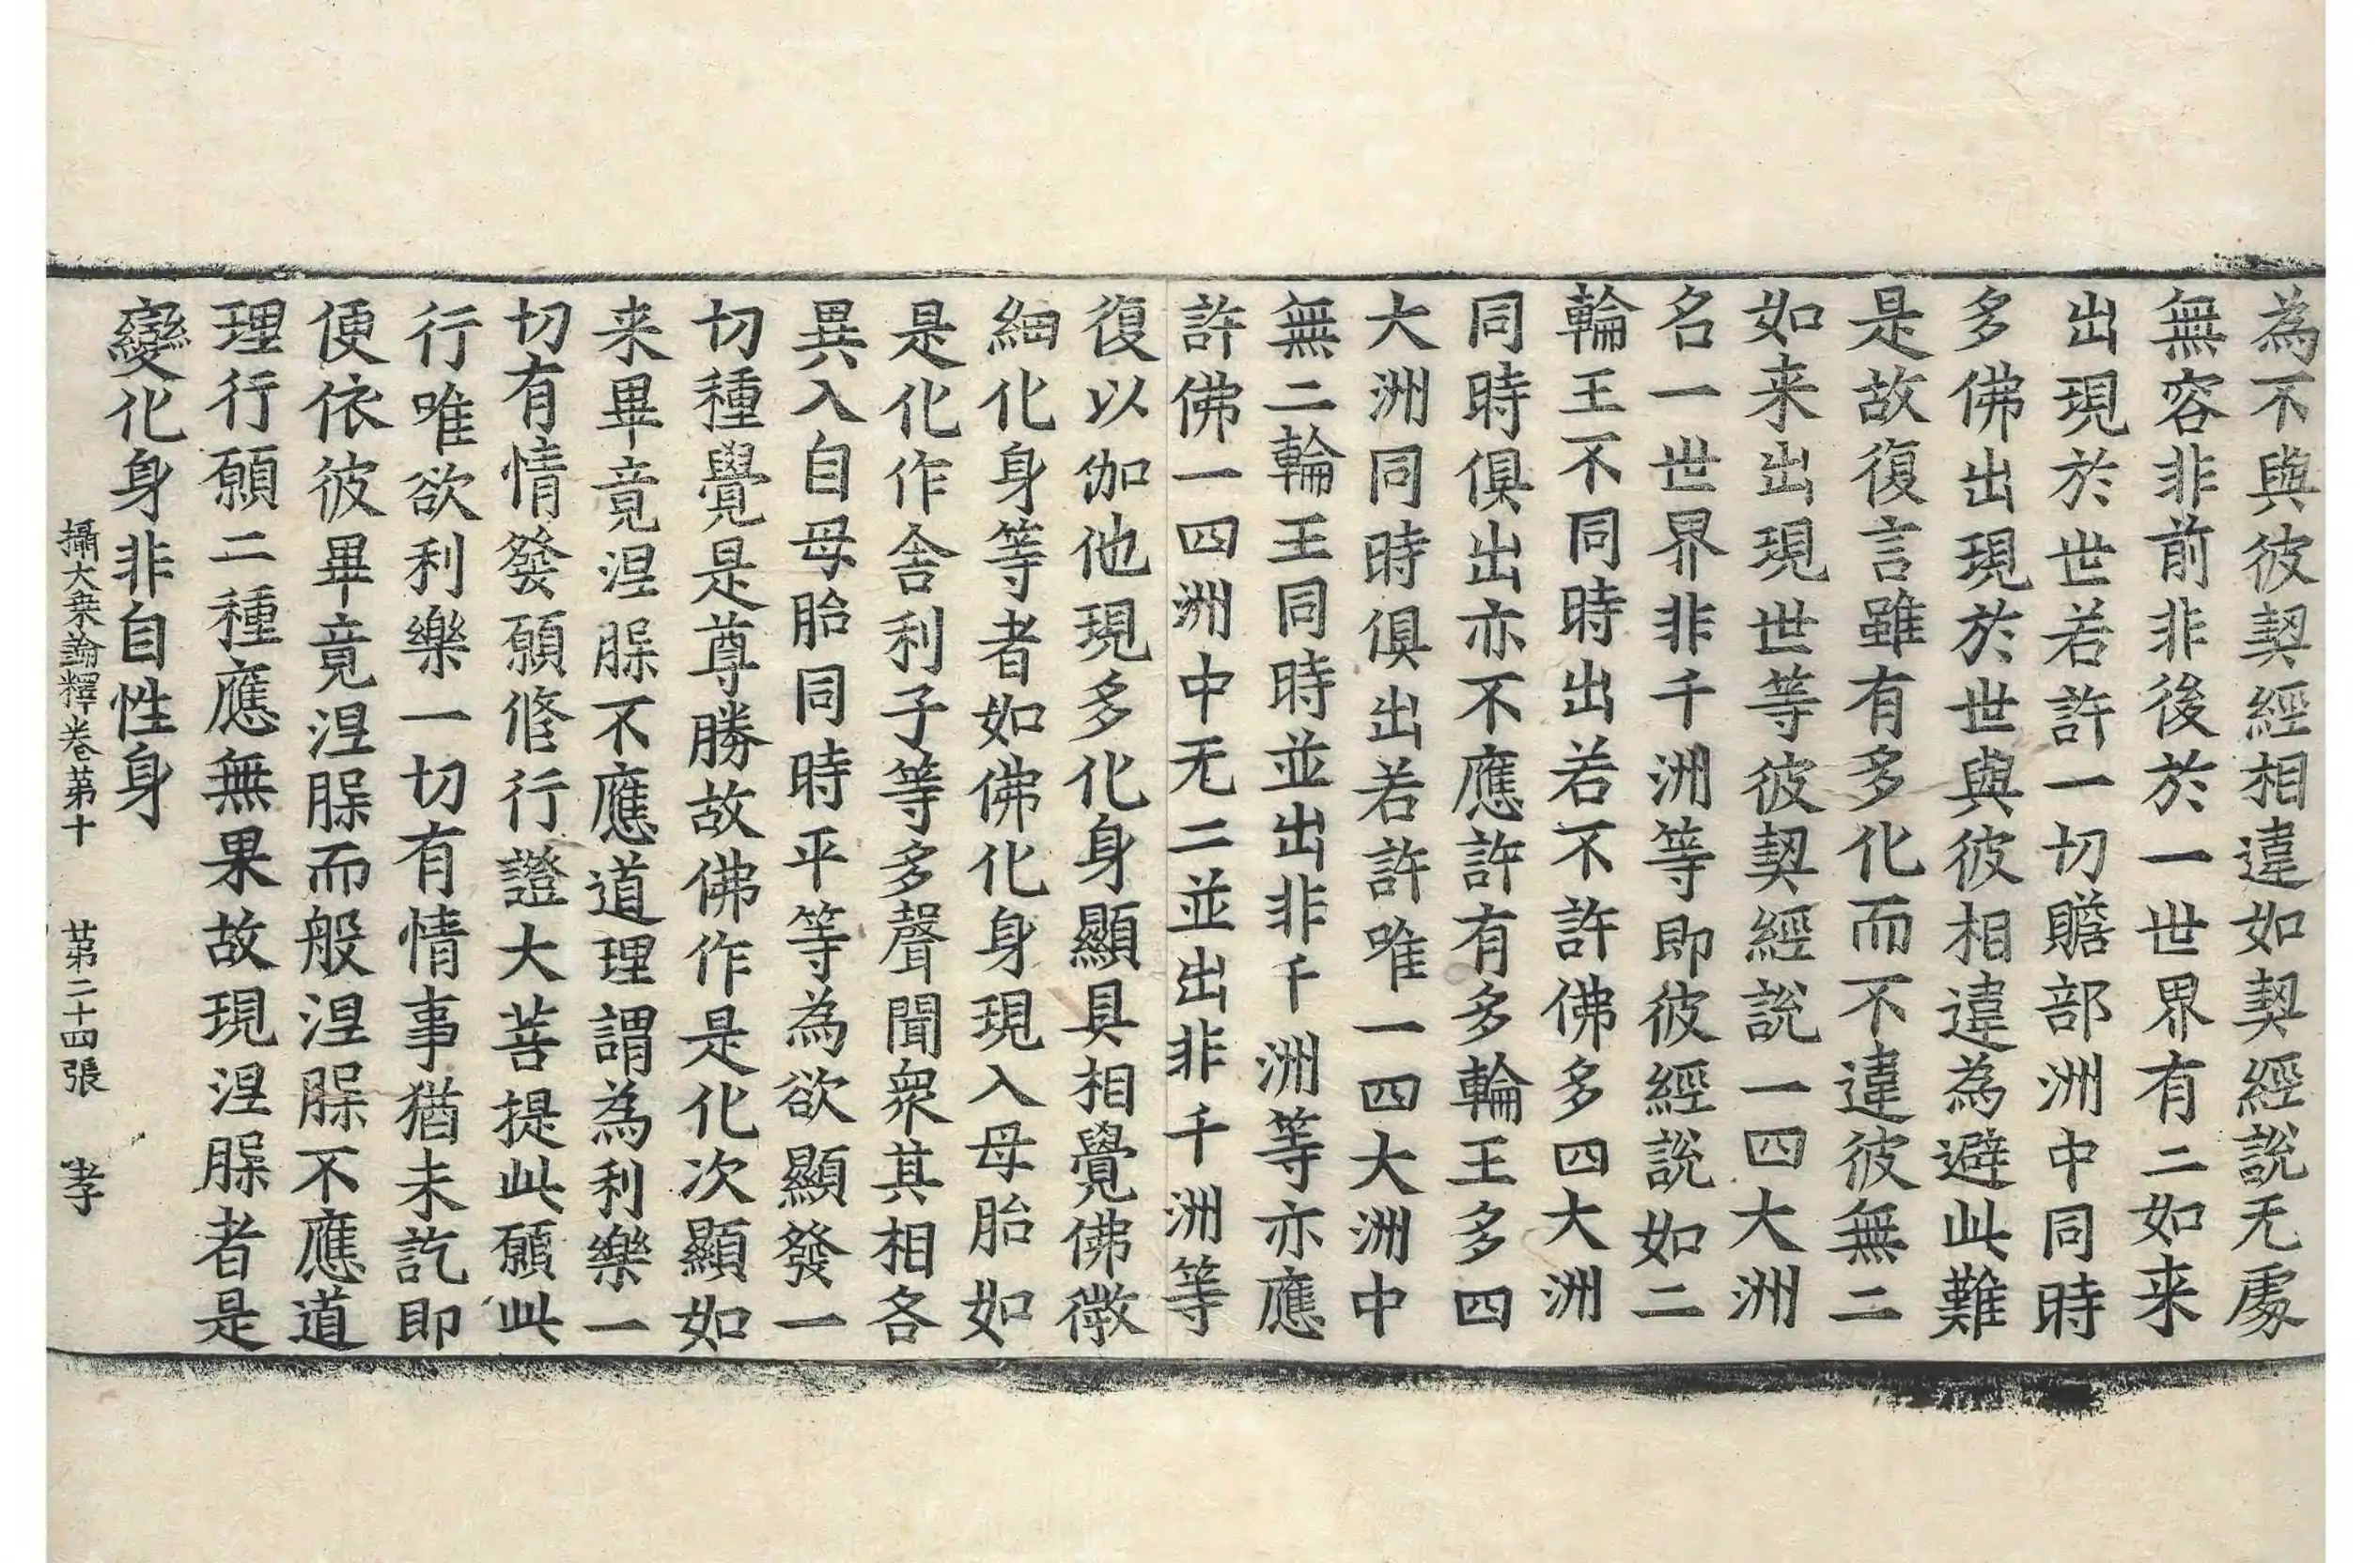 為不與彼契經相違如契經說无處
無容非前非後於一世界有二如来
出現於世若許一切贍部洲中同時
多佛出現於世與彼相違為避此難
是故復言雖有多化而不違彼無二
如来出現世等彼契經說一四大洲
名一世界非千洲等即彼經說如二
輪王不同時出若不許佛多四大洲
同時俱出亦不應許有多輪王多四
大洲同時俱出若許唯一四大洲中
無二輪王同時並出非千洲等亦應
許佛一四洲中无二並出非千洲等
復以伽他現多化身顯具相覺佛微
細化身等者如佛化身現入母胎如
是化作舍利子等多聲聞眾其相各
異入自母胎同時平等為欲顯發一
切種覺是尊勝故佛作是化次顯如
来畢竟涅脲不應道理謂為利樂一
切有情發願修行證大菩提此願此
行唯欲利樂一切有情事猶未訖即
便依彼畢竟涅脲而般涅脲不應道
理行願二種應無果故現涅脲者是
變化身非自性身
攝大乗論釋卷第十 第二十四張 孝